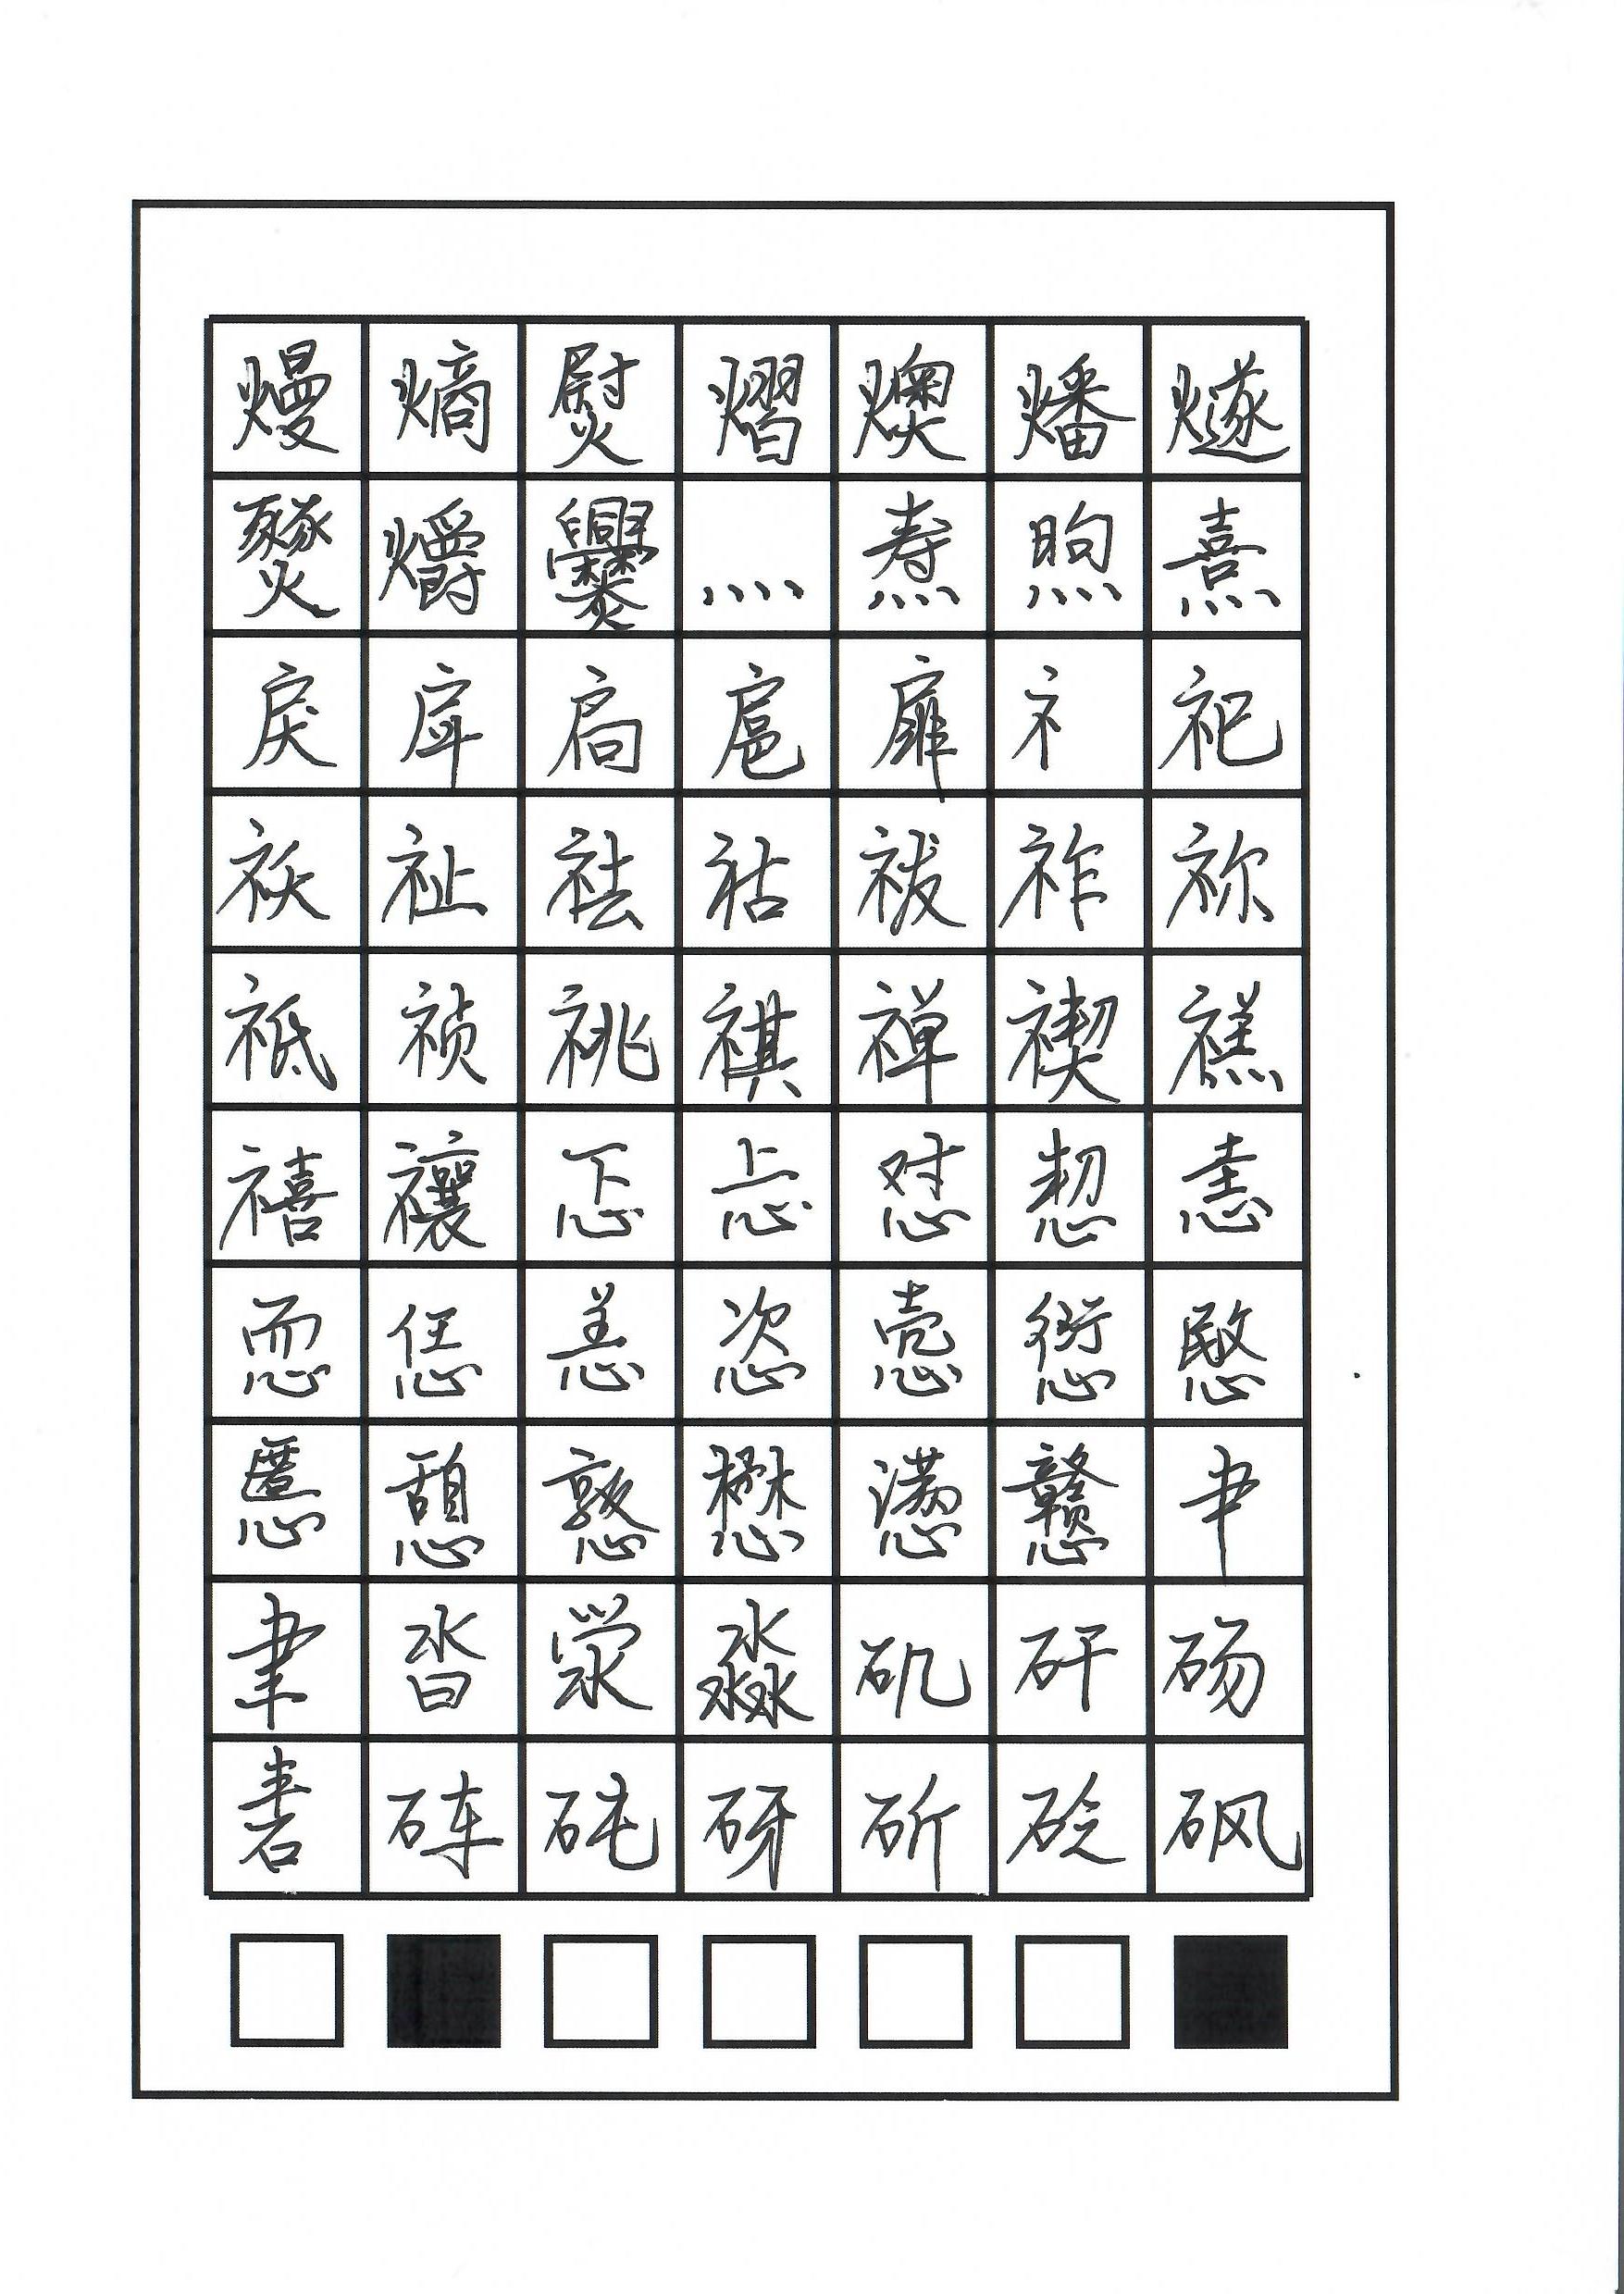 熳熵熨熠燠燔燧
燹爝爨灬焘煦熹
戾戽扃扈扉礻祀
祆祉祛祜祓祚祢
祗祯祧祺禅禊禚
禧禳忑忐怼恝恚
恧恁恙恣悫愆愍
慝憩憝懋懑戆肀
聿沓滎淼矶矸砀
砉砗砘砑斫砭砜